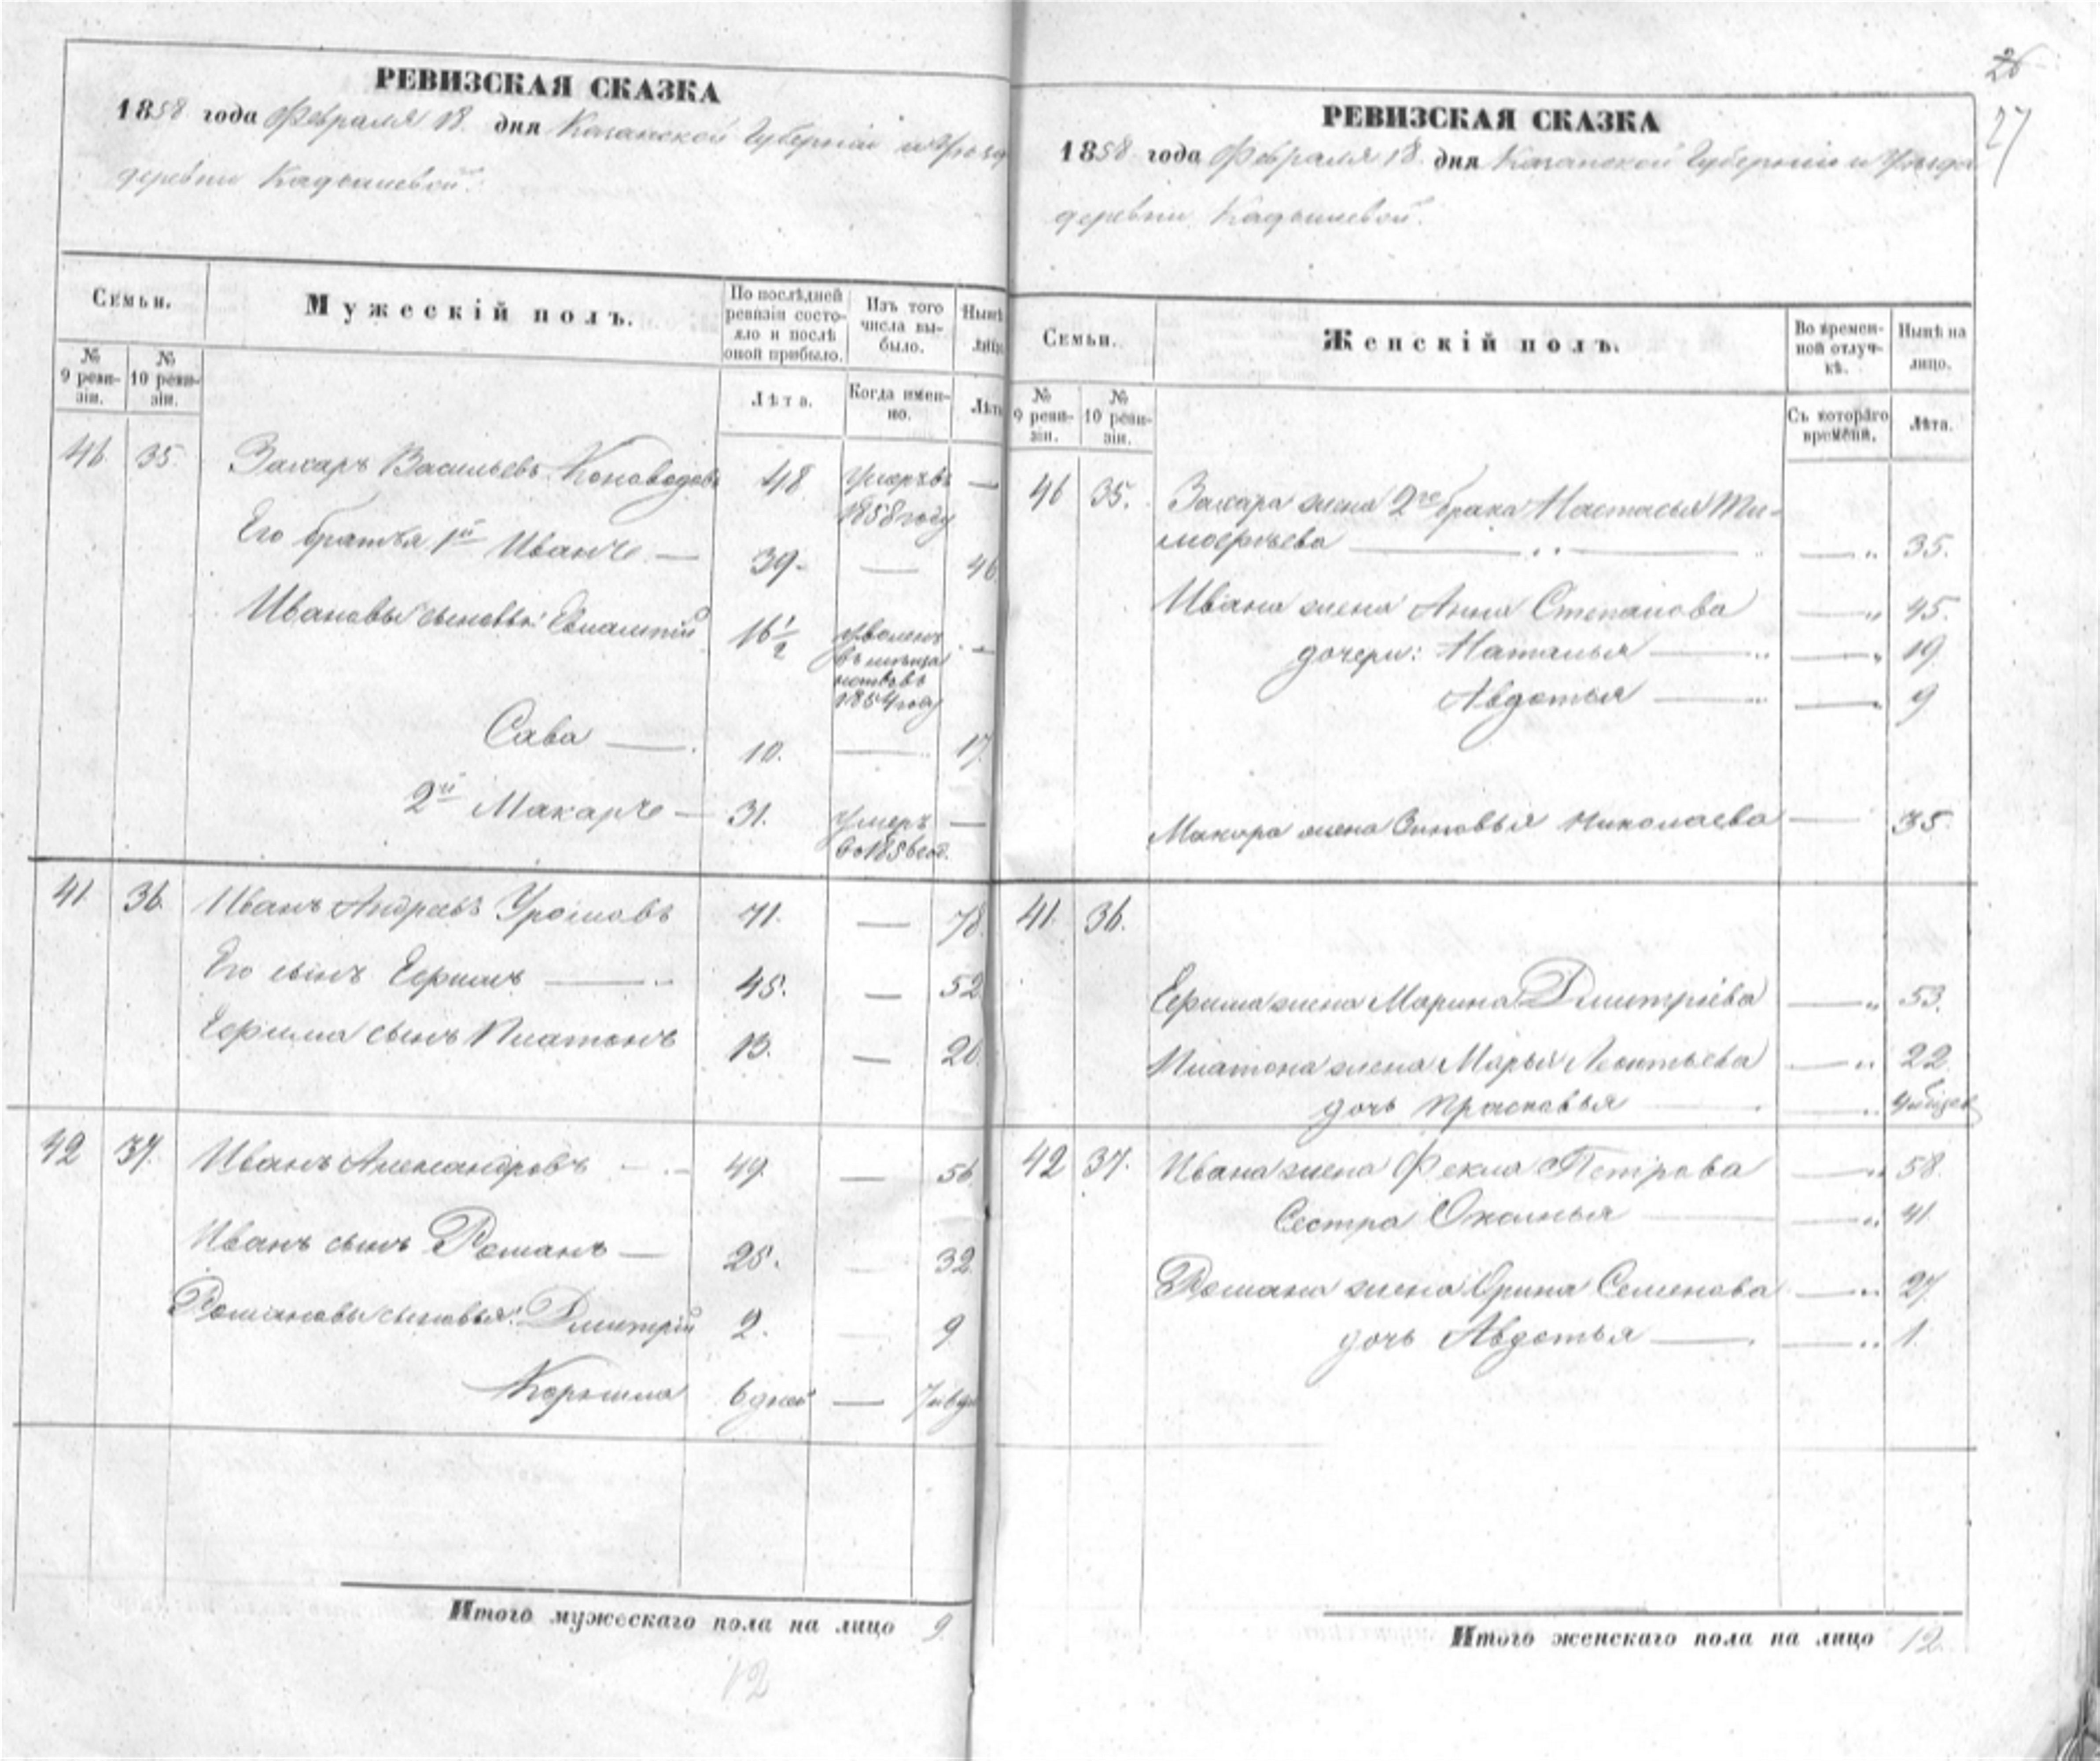 РЕВИЗСКАЯ СКАЗКА
1858 года Февраля 18. дня Казанской Губерніи и Уѣзда
деревни Кадышевой.
Семьи.
Мужескій полъ.
По послѣдней ревизіи состояло и послѣ оной прибыло.
Изъ того числа выбыло.
Нынѣ
лицо
№ 9 ревизіи.
№ 10 ревизіи.
Лѣта.
Когда именно.
Лѣта
46 35. Захаръ Васильевъ Коноводовъ 48 Умеръ въ 1858 году —
Его братья 1й Иванъ — 39. — 46
Ивановы сыновья: 16½ Уволенъ въ 1854 году —
Сава — 10. — 17.
2й Макаръ — 31. Умеръ въ 1856 год. —
41. 36. Иванъ Андреевъ 71. — 78.
Его сынъ Ефимъ — 45. — 52
Ефима сынъ Платонъ 13. — 20.
42 37. Иванъ Александровъ — 49. — 56.
Иванъ сынъ Романъ — 25. — 32.
Романовы сыновья: Дмитрій 2. — 9
6 дней —
Итого мужескаго пола на лицо 9
12
26
27
РЕВИЗСКАЯ СКАЗКА
1858 года Февраля 18. дня Казанской Губерніи и Уѣзда
деревни Кадышевой.
Семьи.
Женскій полъ.
Во временной отлучкѣ.
Нынѣ на лицо.
№ 9 ревизіи.
№ 10 ревизіи.
Съ котораго времени.
Лѣта.
46 35. Захара жена 2го брака Настасья Ти-
мофеева — — 35.
Ивана жена Анна Степанова — 45.
дочери: Наталья — — 19
Авдотья — — 9
Макара жена Зиновья Николаева — 35.
41. 36.
Ефима жена Марина Дмитріева — 53.
Платона жена Марья Леонтьева — 22
дочь Прасковья —
42 37. Ивана жена Фекла Петрова — 58.
Сестра — — 41
Романа жена Орина Семенова — 27.
дочь Авдотья — — 1.
Итого женскаго пола на лицо 12.